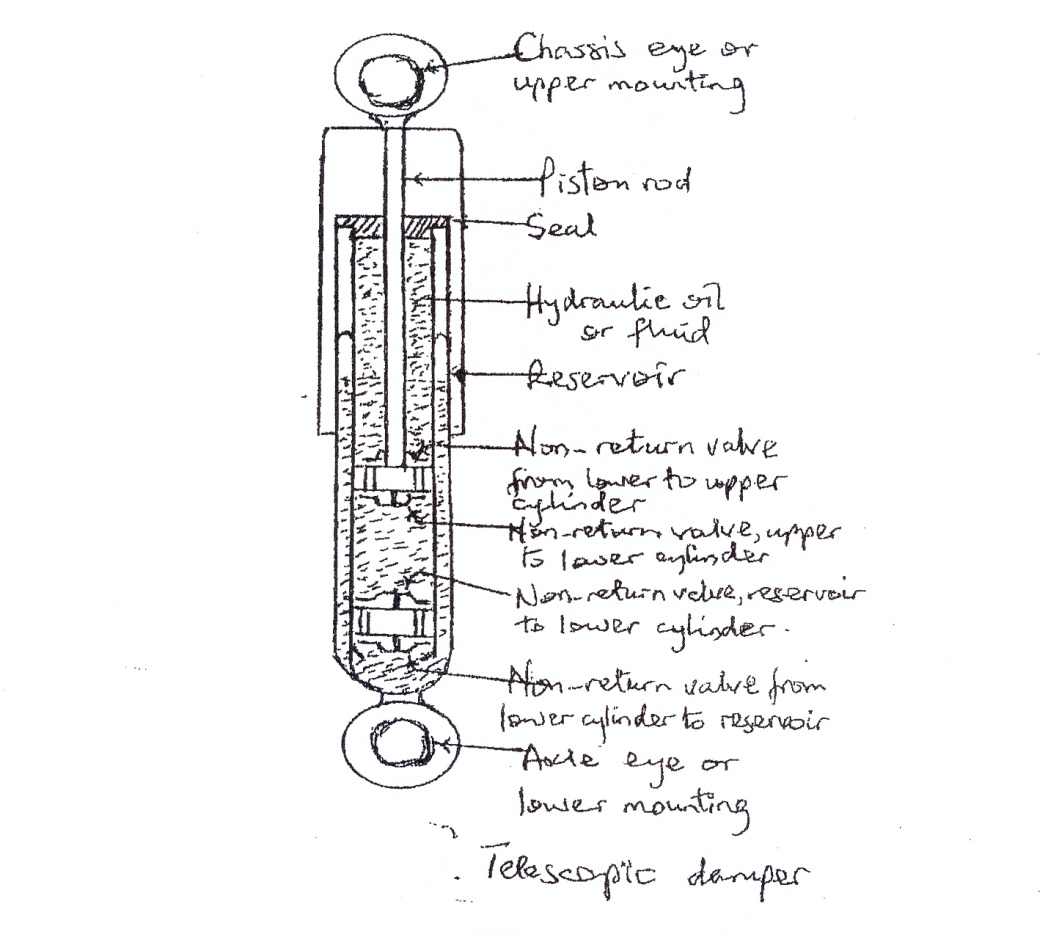 Chassis eye or
upper mounting
Piston rod
Seal
Hydraulic oil
or fluid
Reservoir
Non-return valve
from lower to upper
cylinder
Non-return valve, upper
to lower cylinder
Non-return valve, reservoir
to lower cylinder.
Non-return valve from
lower cylinder to reservoir
Axle eye or
lower mounting
Telescopic damper